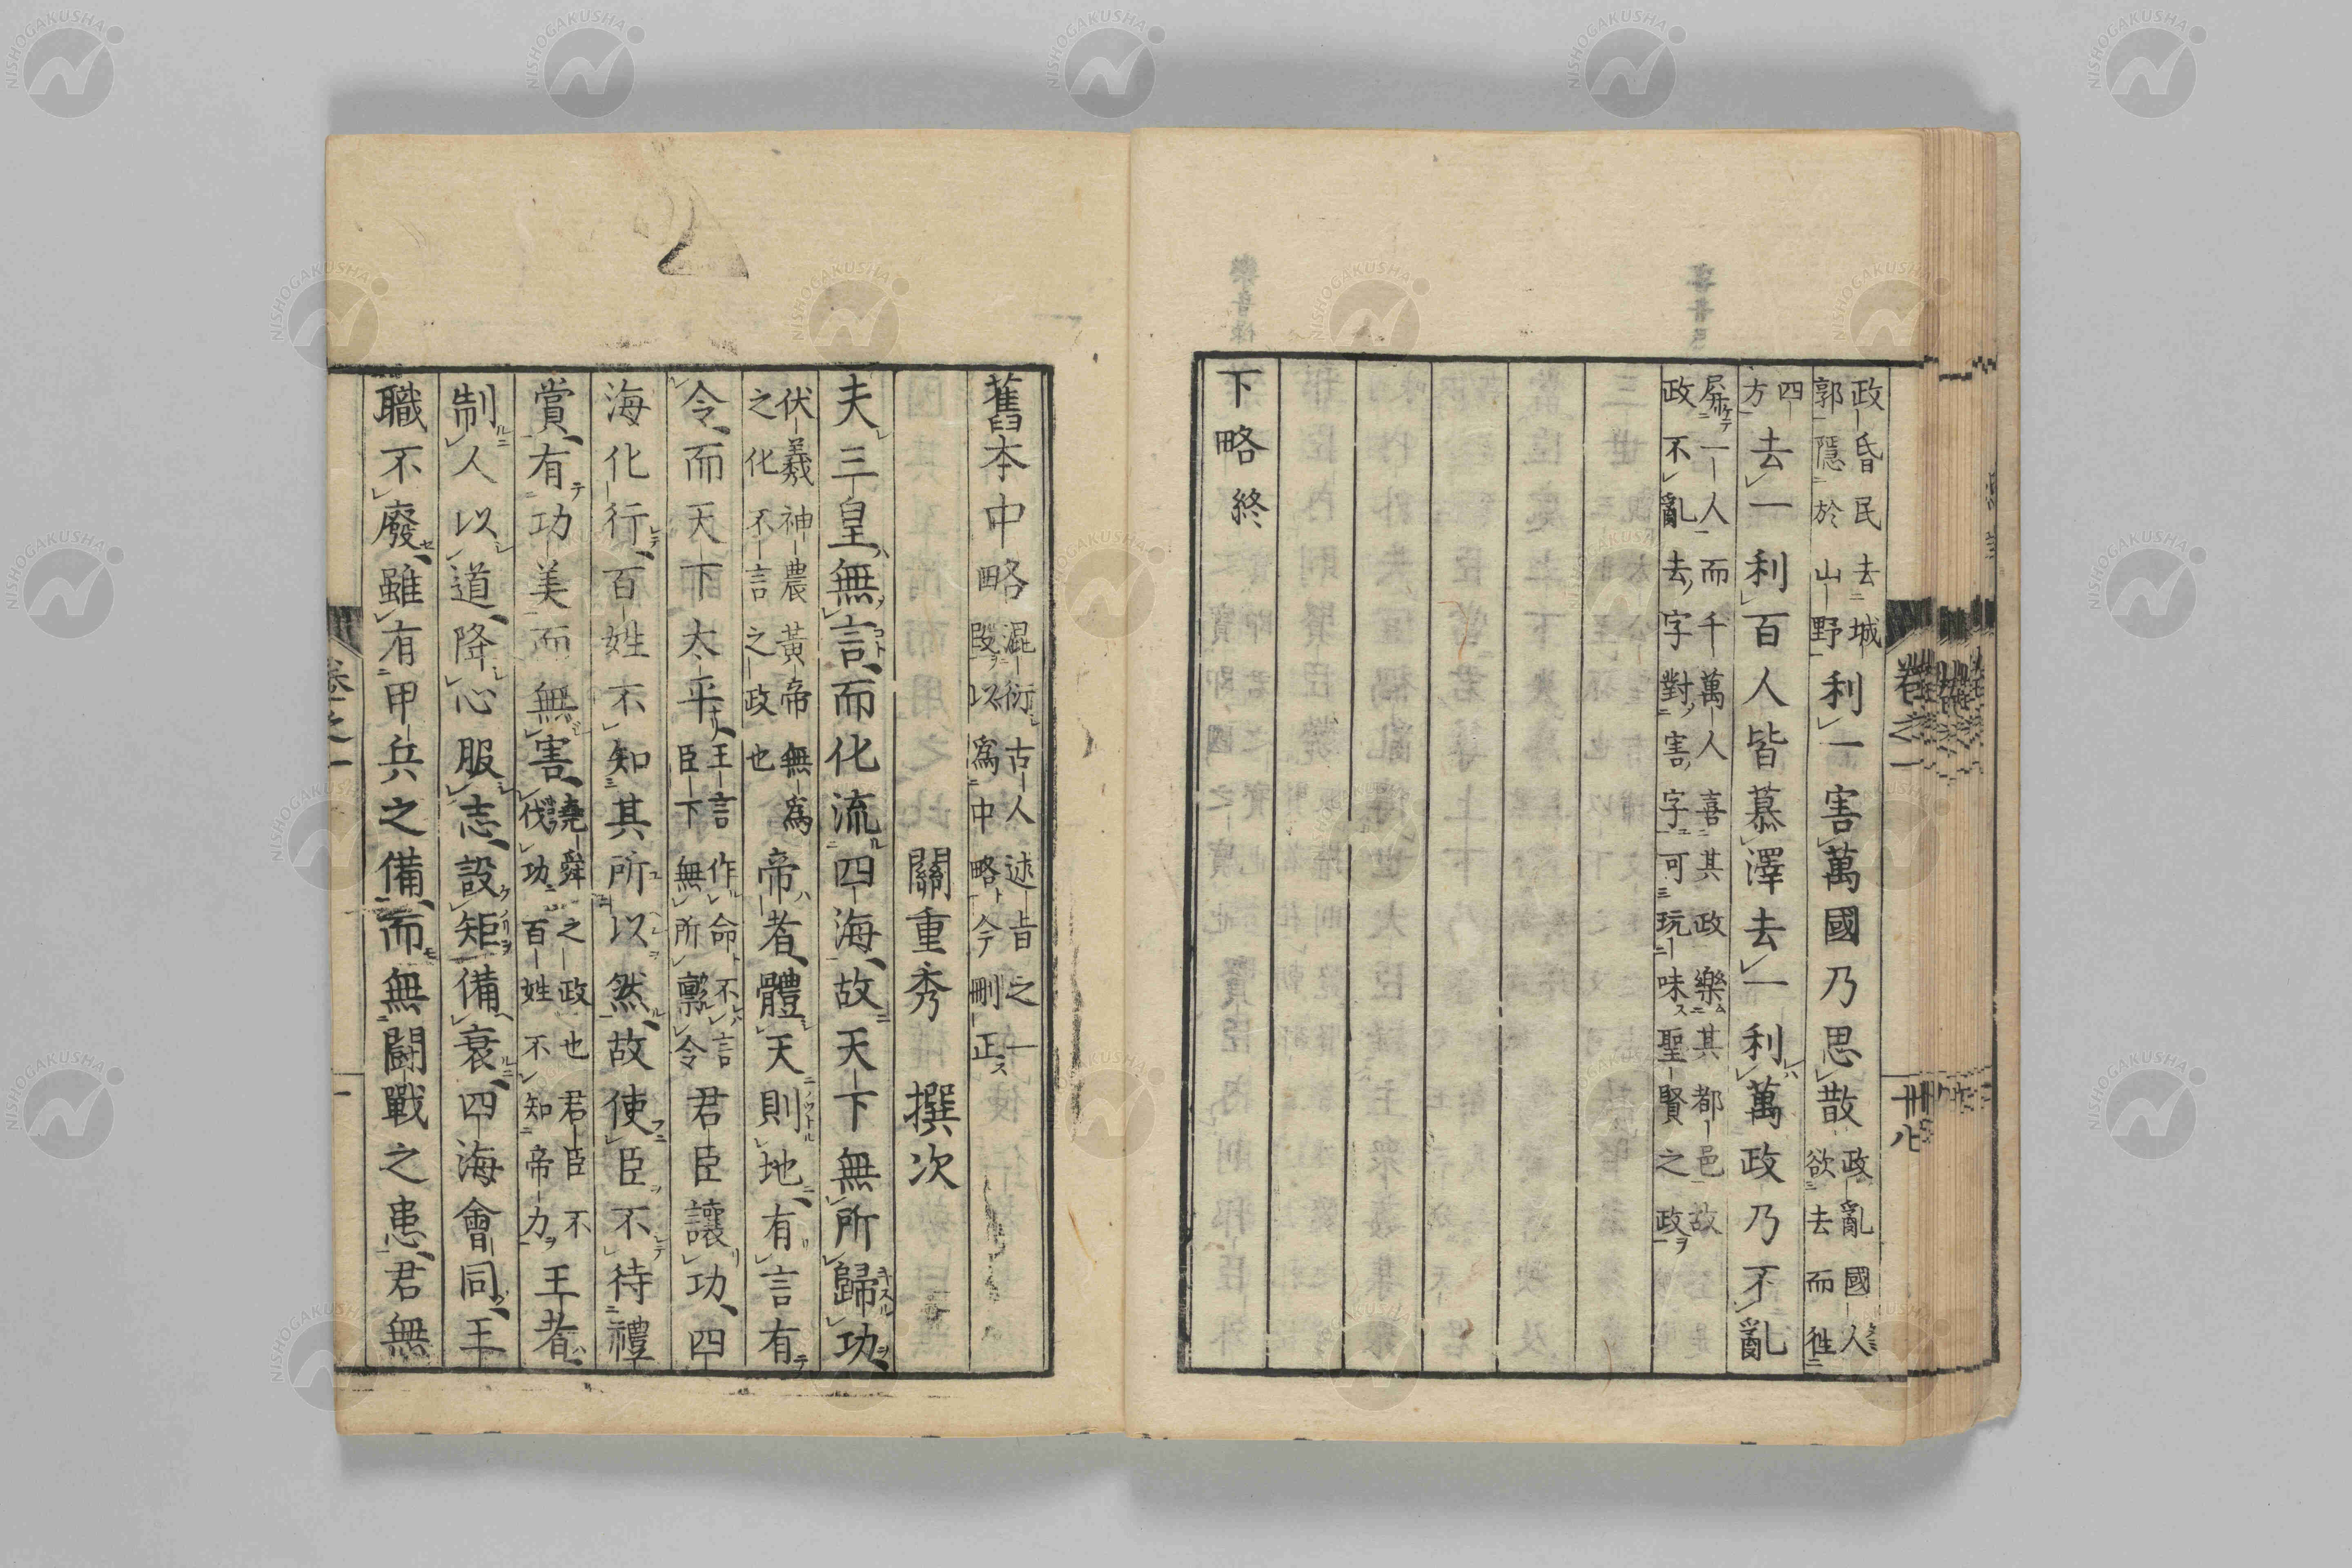 卷之一 卅八
政昏民去城郭隱於山野利一害萬國乃思散政亂國人欲去而徃
四方去一利百人皆慕澤去一利萬政乃不亂
屏一人而千萬人喜其政樂其都邑故政不亂去字對害字可玩味聖賢之政
下略終
舊本中略混衍古人述旨之一段以爲中略今刪正ス
關重秀 撰次
夫三皇無言而化流四海故天下無所歸功
伏羲神農黃帝無爲之化不言之政也帝者體天則地有言有
令而天下太平王言作命不言臣下無所禀令君臣讓功四
海化行百姓不知其所以然故使臣不待禮
賞有功美而無害堯舜之政也君臣不伐功百姓不知帝力王者
制人以道降心服志設矩備衰四海會同王
職不廢雖有甲兵之備而無鬪戰之患君無
卷之一 一